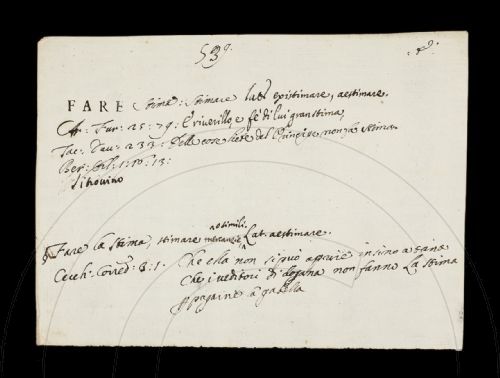 539.
FARE stima: Stimare lat: existimare, aestimare.
Ar: Fur: 25: 79: E riverillo, e fé di lui gran stima,
Tac: Dav: 233: Delle cose liete del Principe non fa stima
Ber: Orl: 1: 10: 13:
si trovino
§ Fare la stima, stimare mercanzie Lat. aestimare.
o simili.
Cecch: Corred: 3: 1: Che ella non si può aprire insino a tanto
Che i veditori di dogana non fanno la stima
p pagarne la gabella